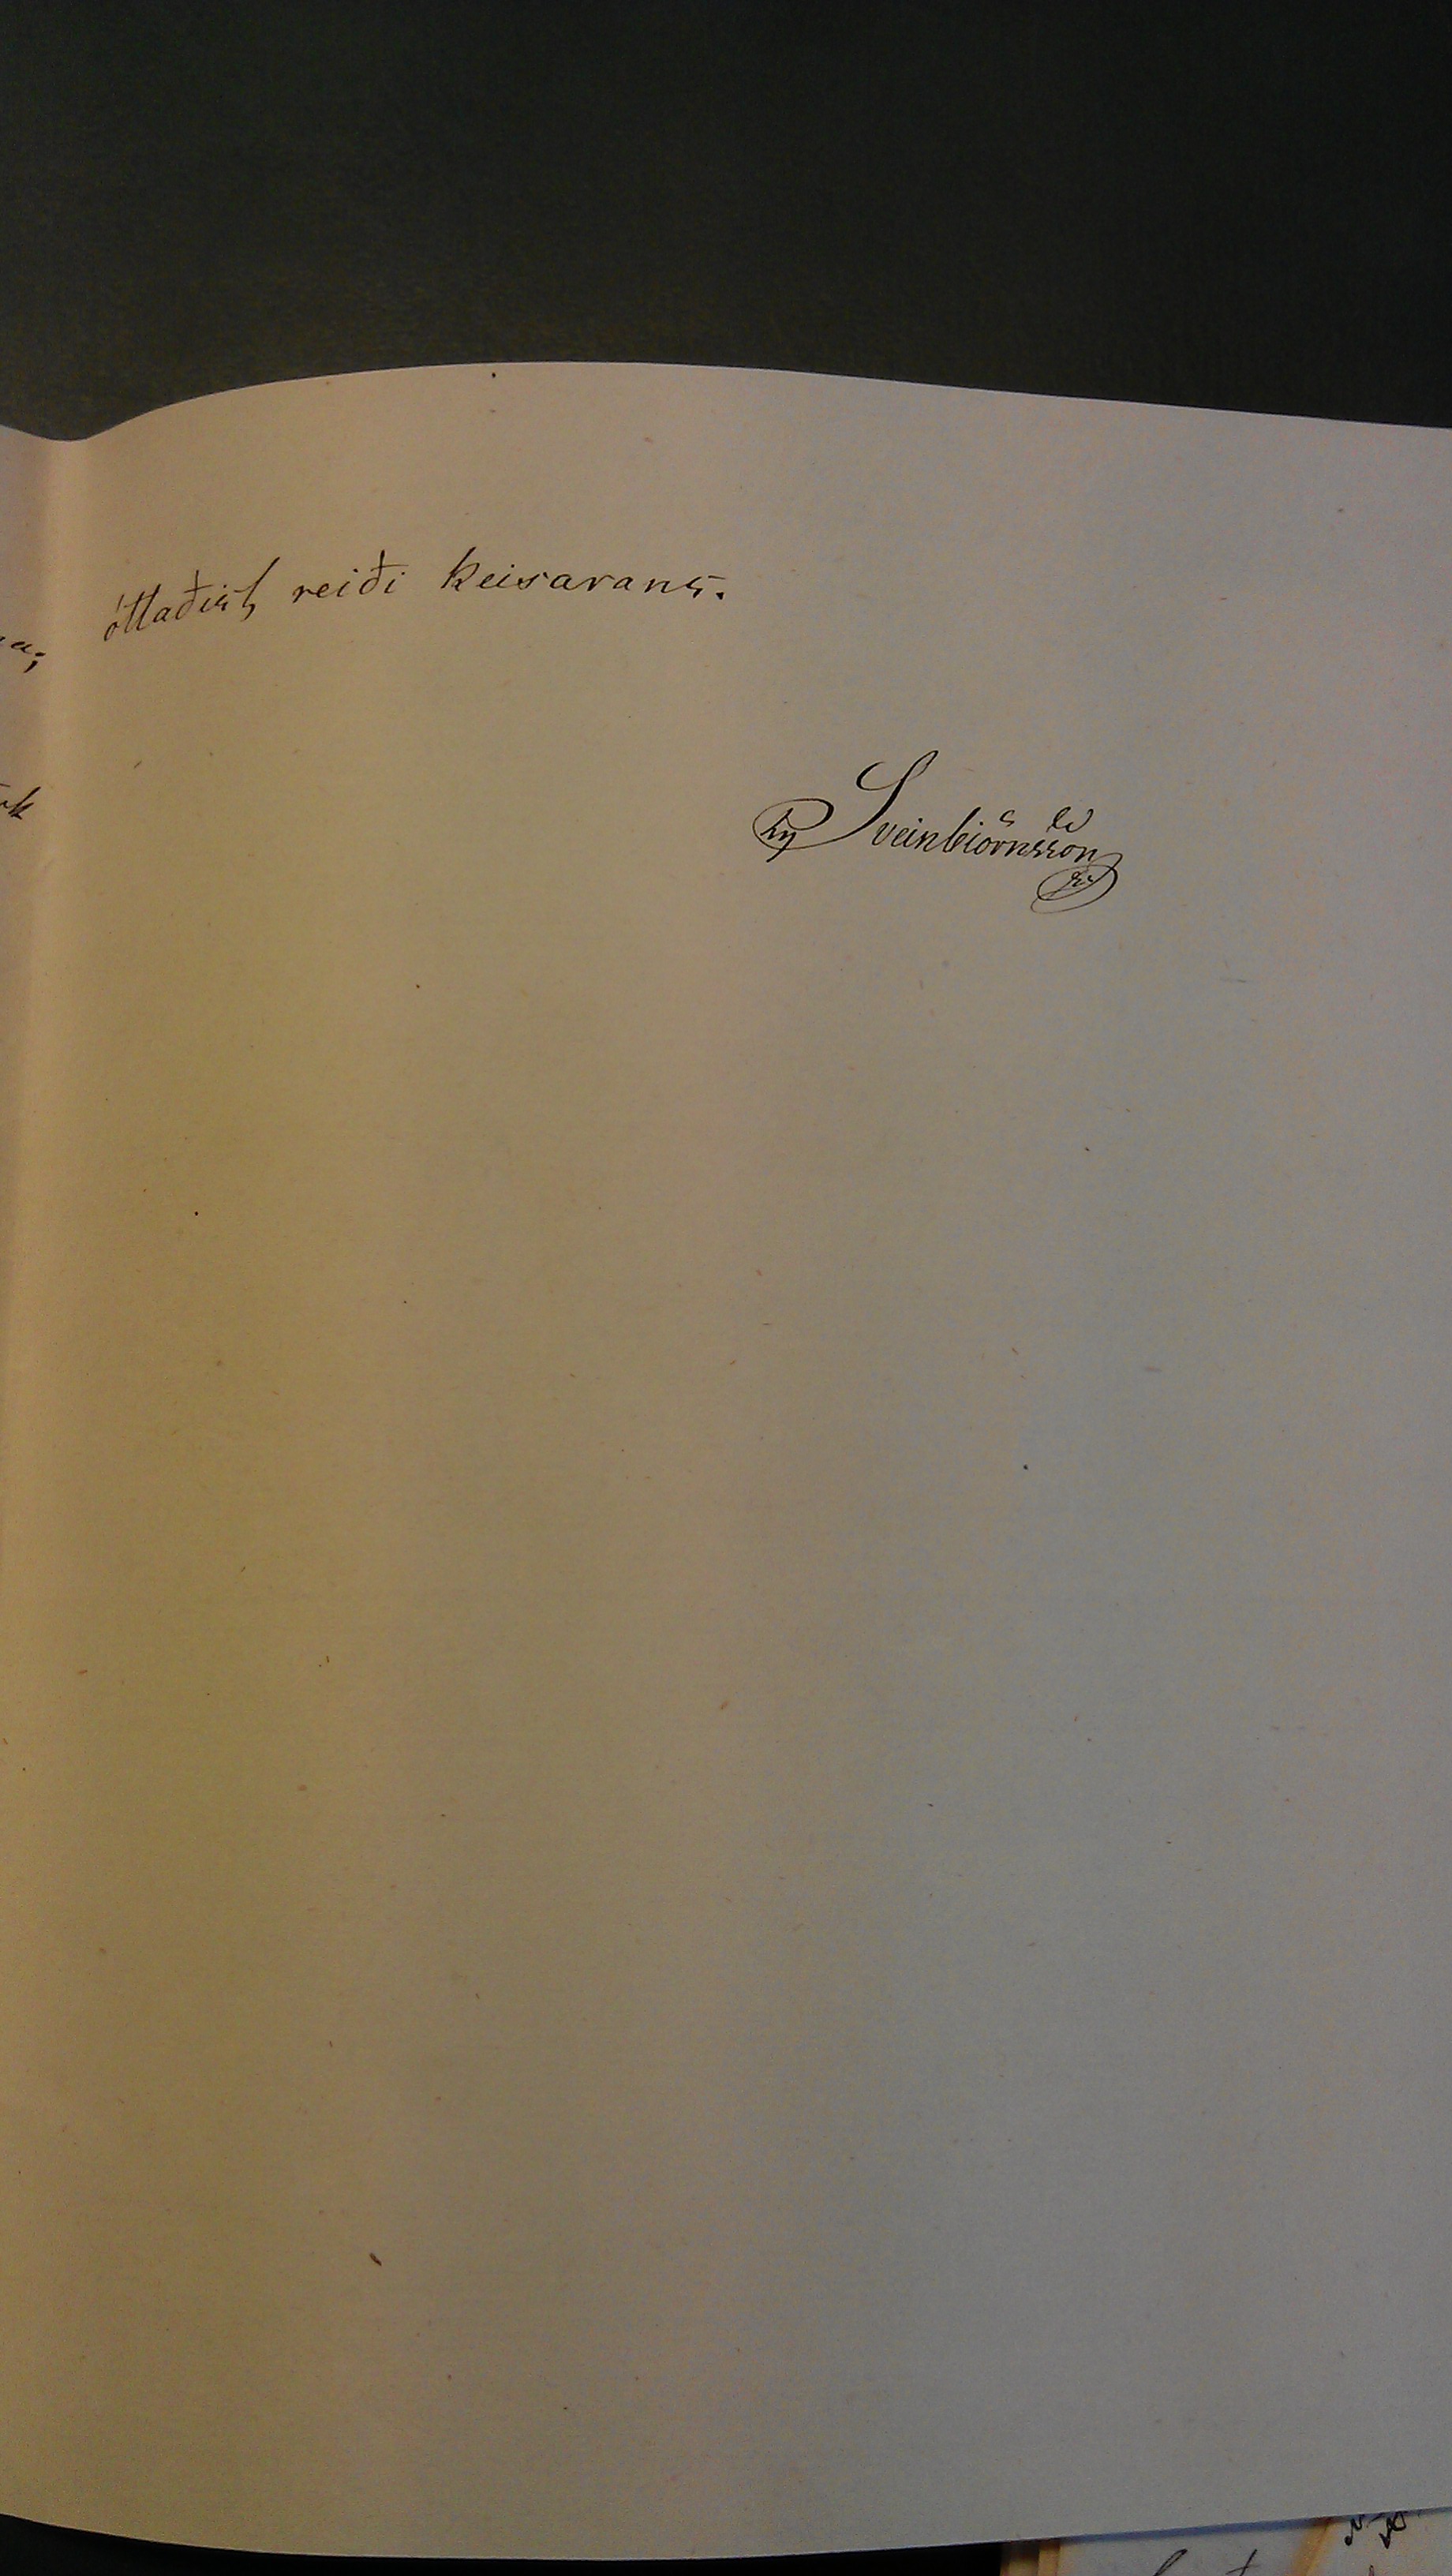 óttaðist reiði keisarans.
Sveinbiörnsson